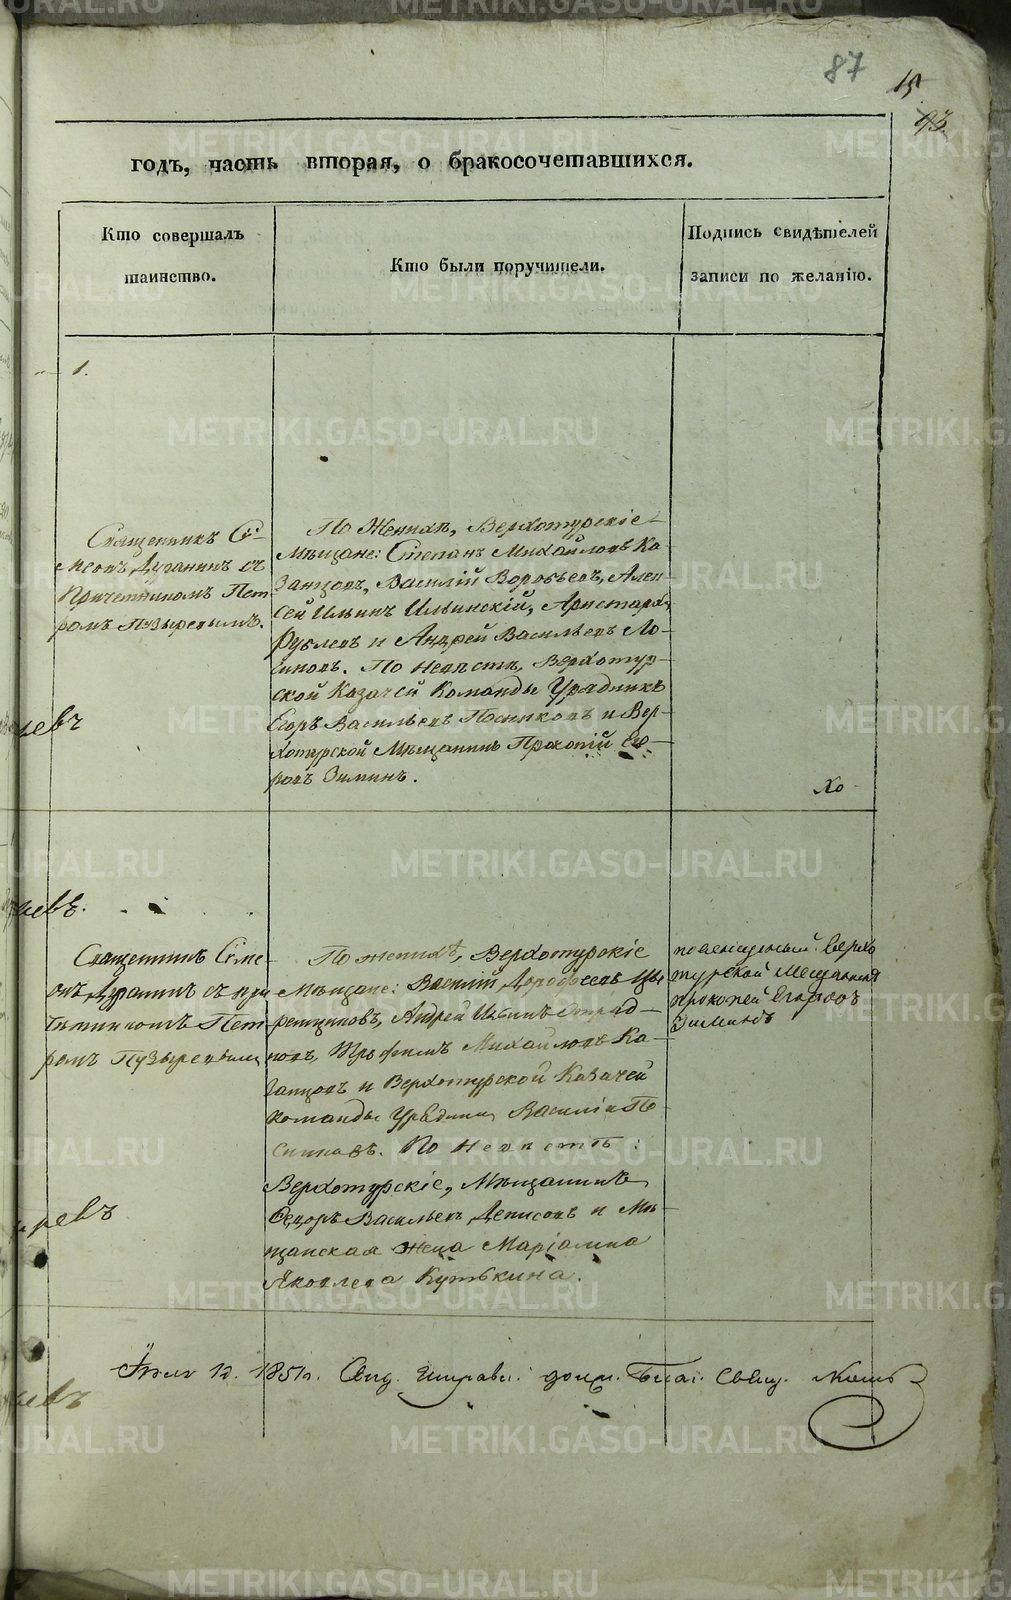 87
15
93
годъ, часть вторая, о бракосочетавшихся.
Кто совершалъ
таинство.
Кто были поручители.
Подпись свидѣтелей
записи по желанію.
1.
Священникъ Си-
меонъ Дуганинъ съ
Причетникомъ Пет
ромъ Пузыревымъ.
По Женихѣ, Верхотурскіе
Мѣщане: Степанъ Михайловъ Ка
занцовъ, Василій Воробьевъ, Алек-
сей Ильинъ Ильинскій, Аристархъ
Рублевъ и Андрей Васильевъ Ло-
гиновъ. По Невѣстѣ, Верхотур-
ской Казачей Команды Урядникъ
Егоръ Васильевъ Посниковъ и Вер-
хотурской Мѣщанинъ Прокопій Его-
ровъ Зиминъ.
Хо
Священникъ Симе
онъ Дуганинъ съ при
четникомъ Пет-
ромъ Пузыревымъ
По женихѣ, Верхотурскіе
Мѣщане: Василій Дорофеевъ
Андрей Ильинъ
Трофимъ Михайловъ Ка-
занцовъ и Верхотурской Казачей
команды Урядникъ Василій По
сниковъ. По Невѣстѣ:
Верхотурскіе, Мѣщанинъ
Федоръ Васильевъ Денисовъ и Мѣ-
щанская жена Маріамна
Яковлева Кутькина.
Верхо
турской Мещанинъ
прокопей Егоровъ
Зиминъ
1851. Свид. Исправл. долж. Благ. Свящ.
METRIKI.GASO-URAL.RU